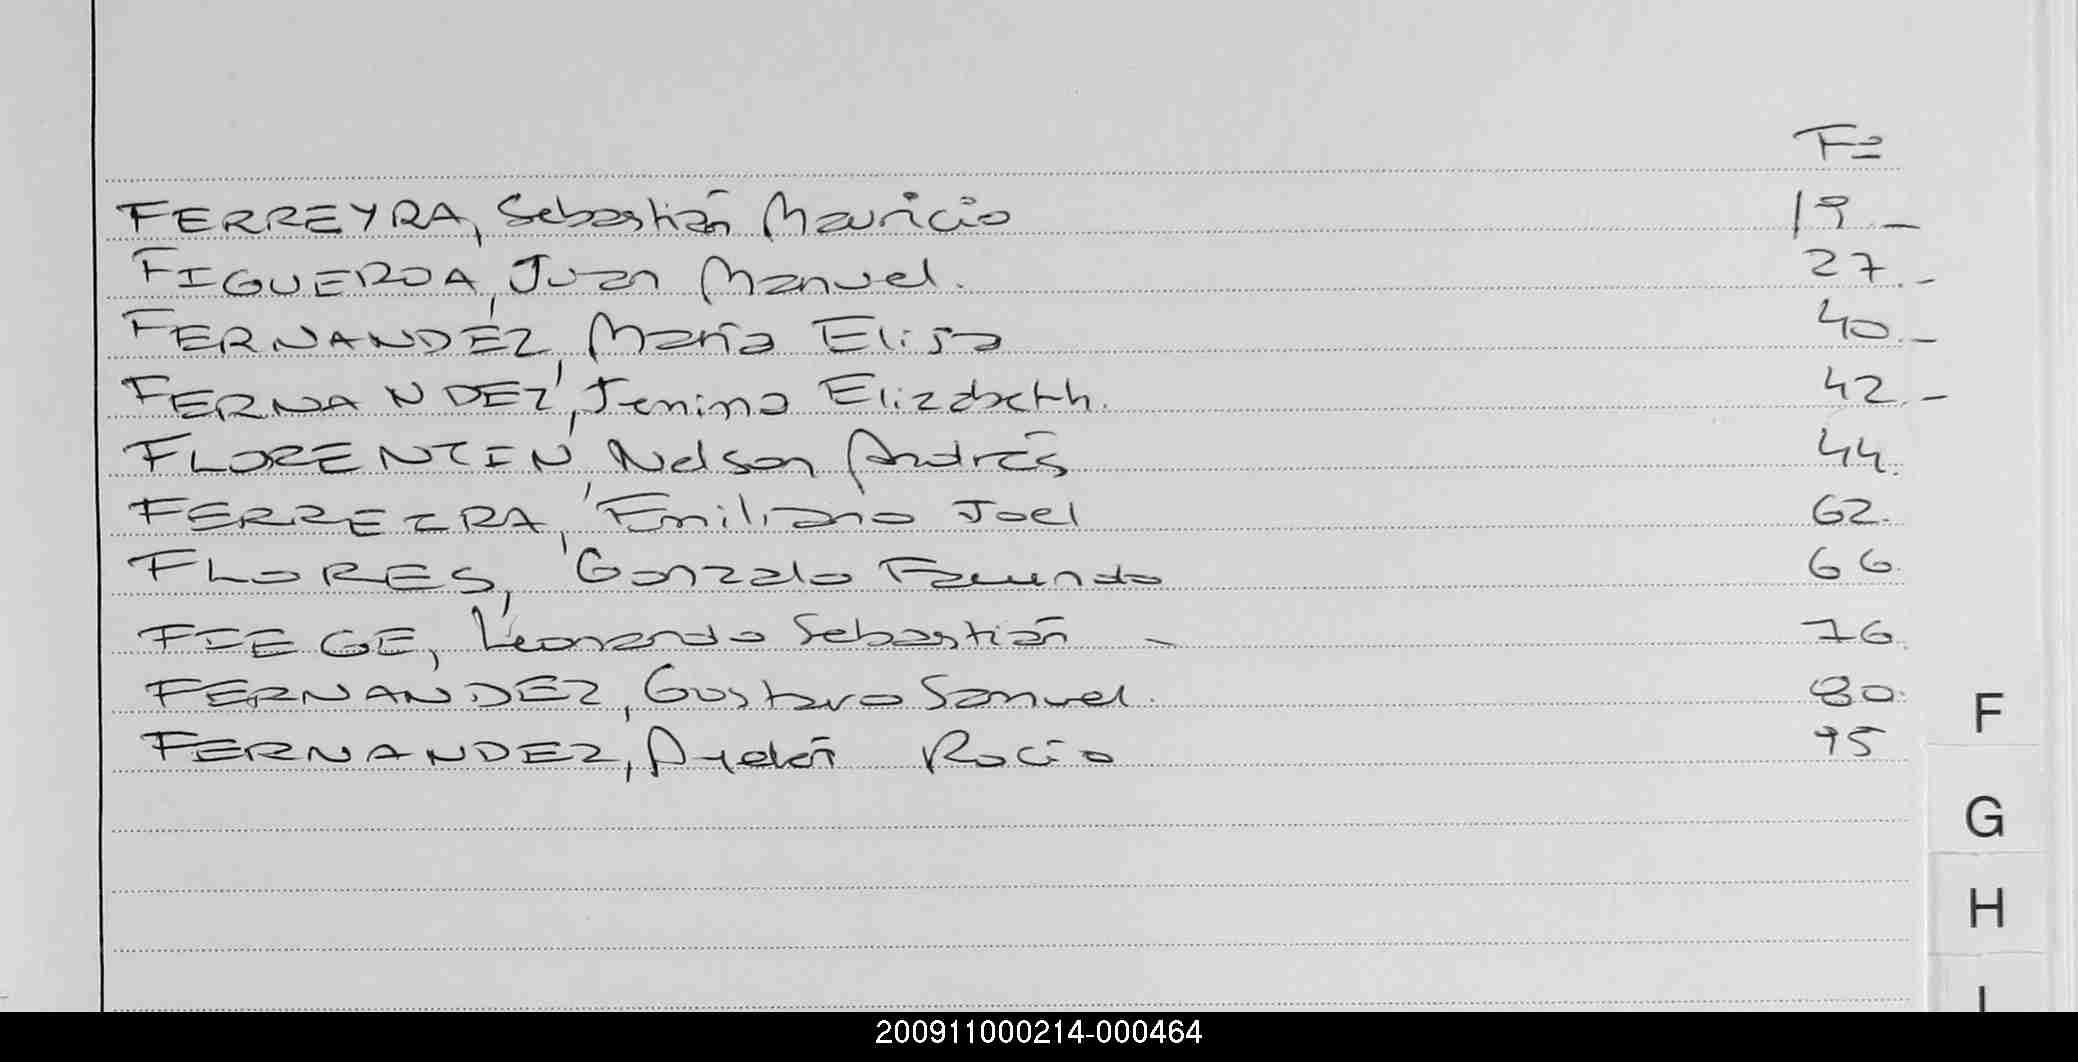 Fº
FERREYRA, Sebastián Mauricio 19.-
FIGUEROA, Juan Manuel. 27.-
FERNANDEZ, María Elisa 40.-
FERNANDEZ, Jemima Elizabeth. 42.-
FLORENTIN, Nelson Andrés 44.
FERREIRA, Emiliano Joel 62.
FLORES, Gonzalo Facundo 66.
FIEGE, Leonardo Sebastián - 76.
FERNANDEZ, Gustavo Samuel. 80.
FERNANDEZ, Rocío 95
F
G
H
I
200911000214-000464